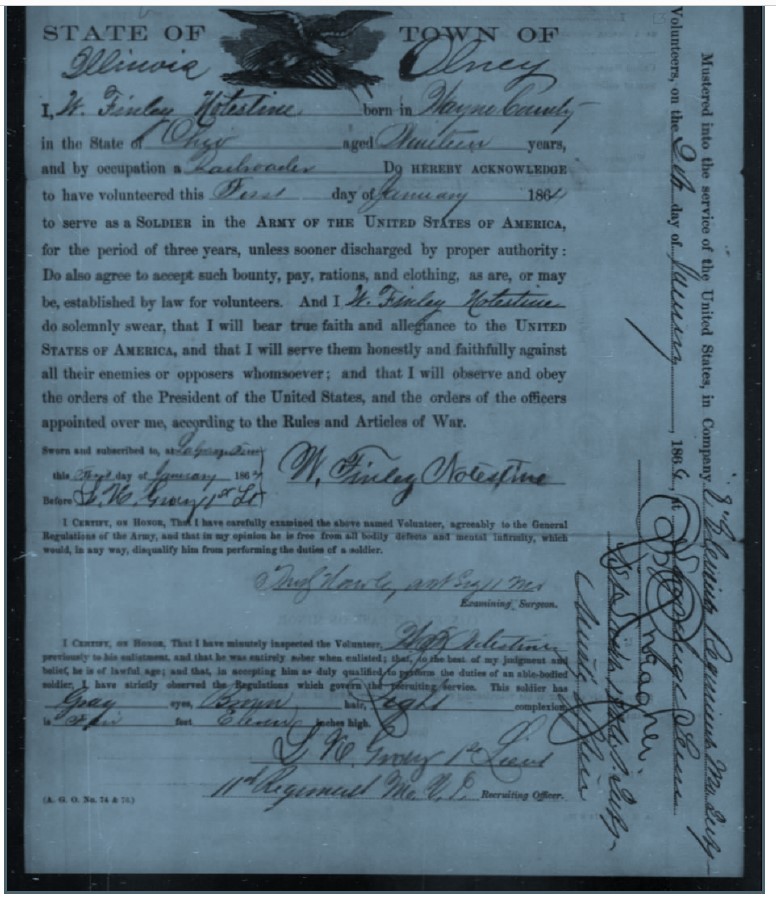 STATE OF TOWN OF
Illinois Olney
I, W. Finley Notestine born in Wayne County
in the State of Ohio aged Nineteen years,
and by occupation a Railroader Do HEREBY ACKNOWLEDGE
to have volunteered this First day of January 1864
to serve as a SOLDIER in the ARMY OF THE UNITED STATES OF AMERICA,
for the period of three years, unless sooner discharged by proper authority:
Do also agree to accept such bounty, pay, rations, and clothing, as are, or may
be, established by law for volunteers. And I W. Finley Notestine
do solemnly swear, that I will bear true faith and allegiance to the UNITED
STATES OF AMERICA, and that I will serve them honestly and faithfully against
all their enemies or opposers whomsoever; and that I will observe and obey
the orders of the President of the United States, and the orders of the officers
appointed over me, according to the Rules and Articles of War.
Sworn and subscribed to, at
this First day of January 1864
Before
W. Finley Notestine
I CERTIFY, ON HONOR, That I have carefully examined the above named Volunteer, agreeably to the General
Regulations of the Army, and that in my opinion he is free from all bodily defects and mental infirmity, which
would, in any way, disqualify him from performing the duties of a soldier.
Examining Surgeon.
I CERTIFY, ON HONOR, That I have minutely inspected the Volunteer, Notestine
previously to his enlistment, and that he was entirely sober when enlisted; that, to the best of my judgment and
belief, he is of lawful age; and that, in accepting him as duly qualified to perform the duties of an able-bodied
soldier, I have strictly observed the Regulations which govern the recruiting service. This soldier has
Gray eyes, Brown hair, Light complexion,
is feet Eleven inches high.
11th Regiment Mo. V. I. Recruiting Officer.
(A. G. O. No. 74 & 76.)
Mustered into the service of the United States, in Company Eleventh Regiment
Volunteers, on the day of January, 1864, at